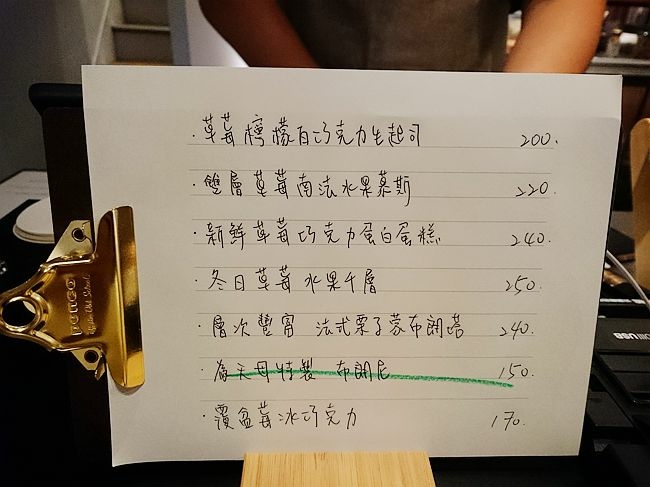 ·草莓檸檬白巧克力生起司 200.
·雙層草莓南法水果慕斯 220.
·新鮮草莓巧克力蛋白蛋糕 240.
·冬日草莓水果千層 250.
·層次豐富 法式栗子蒙布朗塔 240.
·為天母特製 布朗尼 150.
·覆盆莓冰巧克力 170.
PENCO